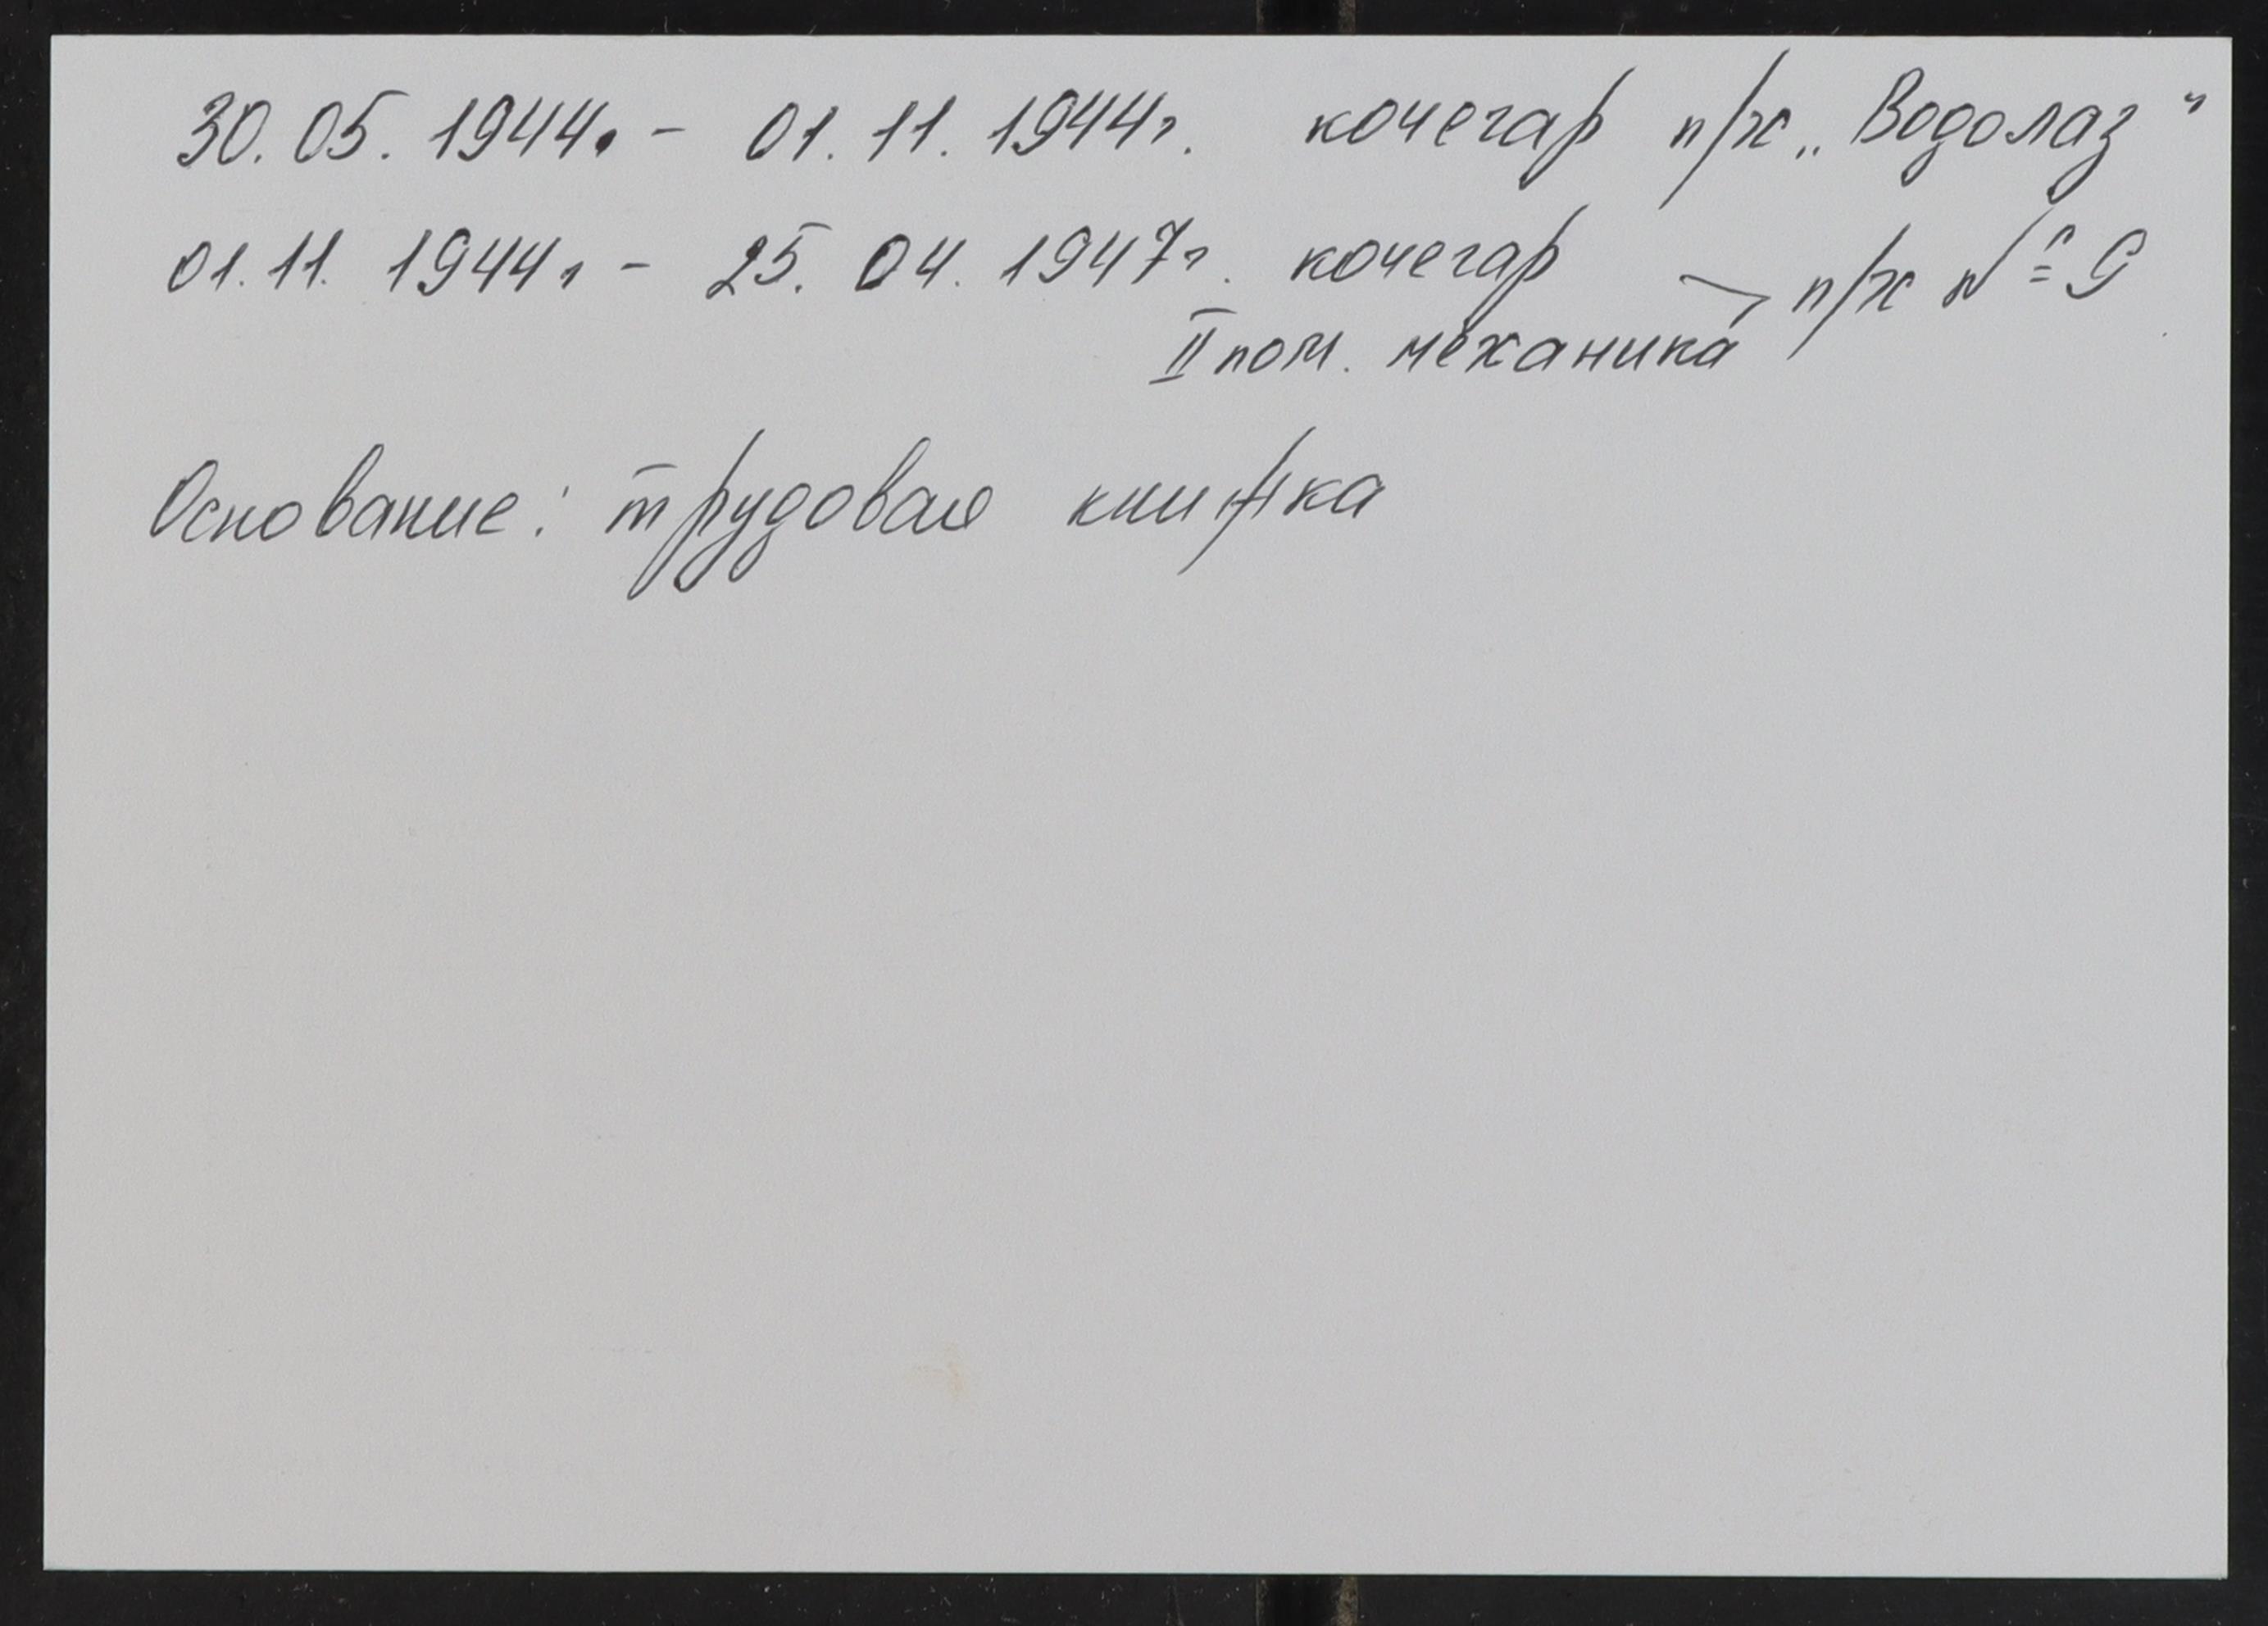 30.05.1944. - 01.11.1944г. кочегар п/х „Водолаз"
01.11.1944г - 25.04.1947г. кочегар п/х № 9
II пом. механика
Основание: трудовая книжка